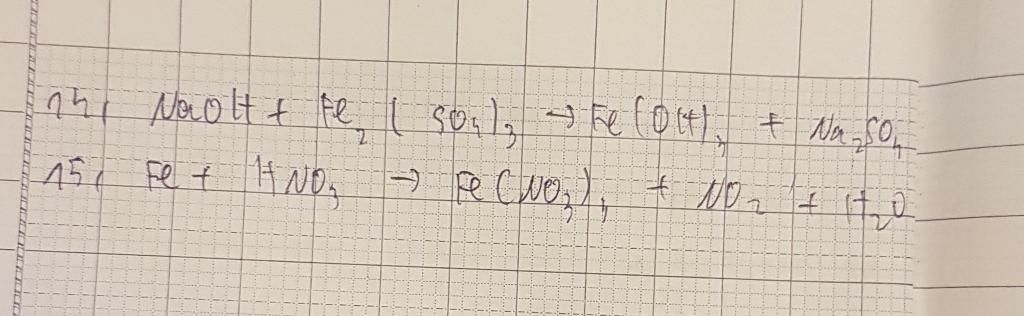 14, NaOH + Fe₂(SO₄)₃ → Fe(OH)₃ + Na₂SO₄
15, Fe + HNO₃ → Fe(NO₃)₃ + NO₂ + H₂O